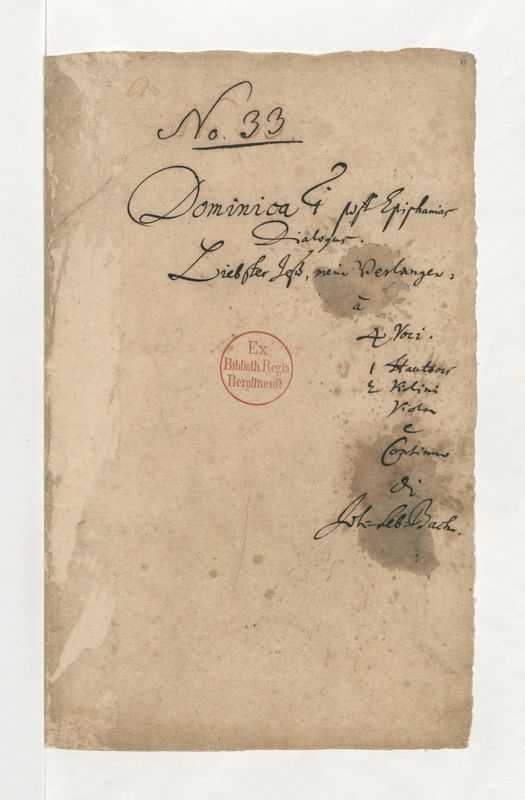 No. 33
Dominica 1 post Epiphanias
Dialogus.
Liebster Jesu, mein Verlangen,
à
4 Voci.
1 Hautbois
2 Violini
Viola
e
Continuo
di
Joh: Seb: Bach.
Ex
Biblioth. Regia
Berolinensi.